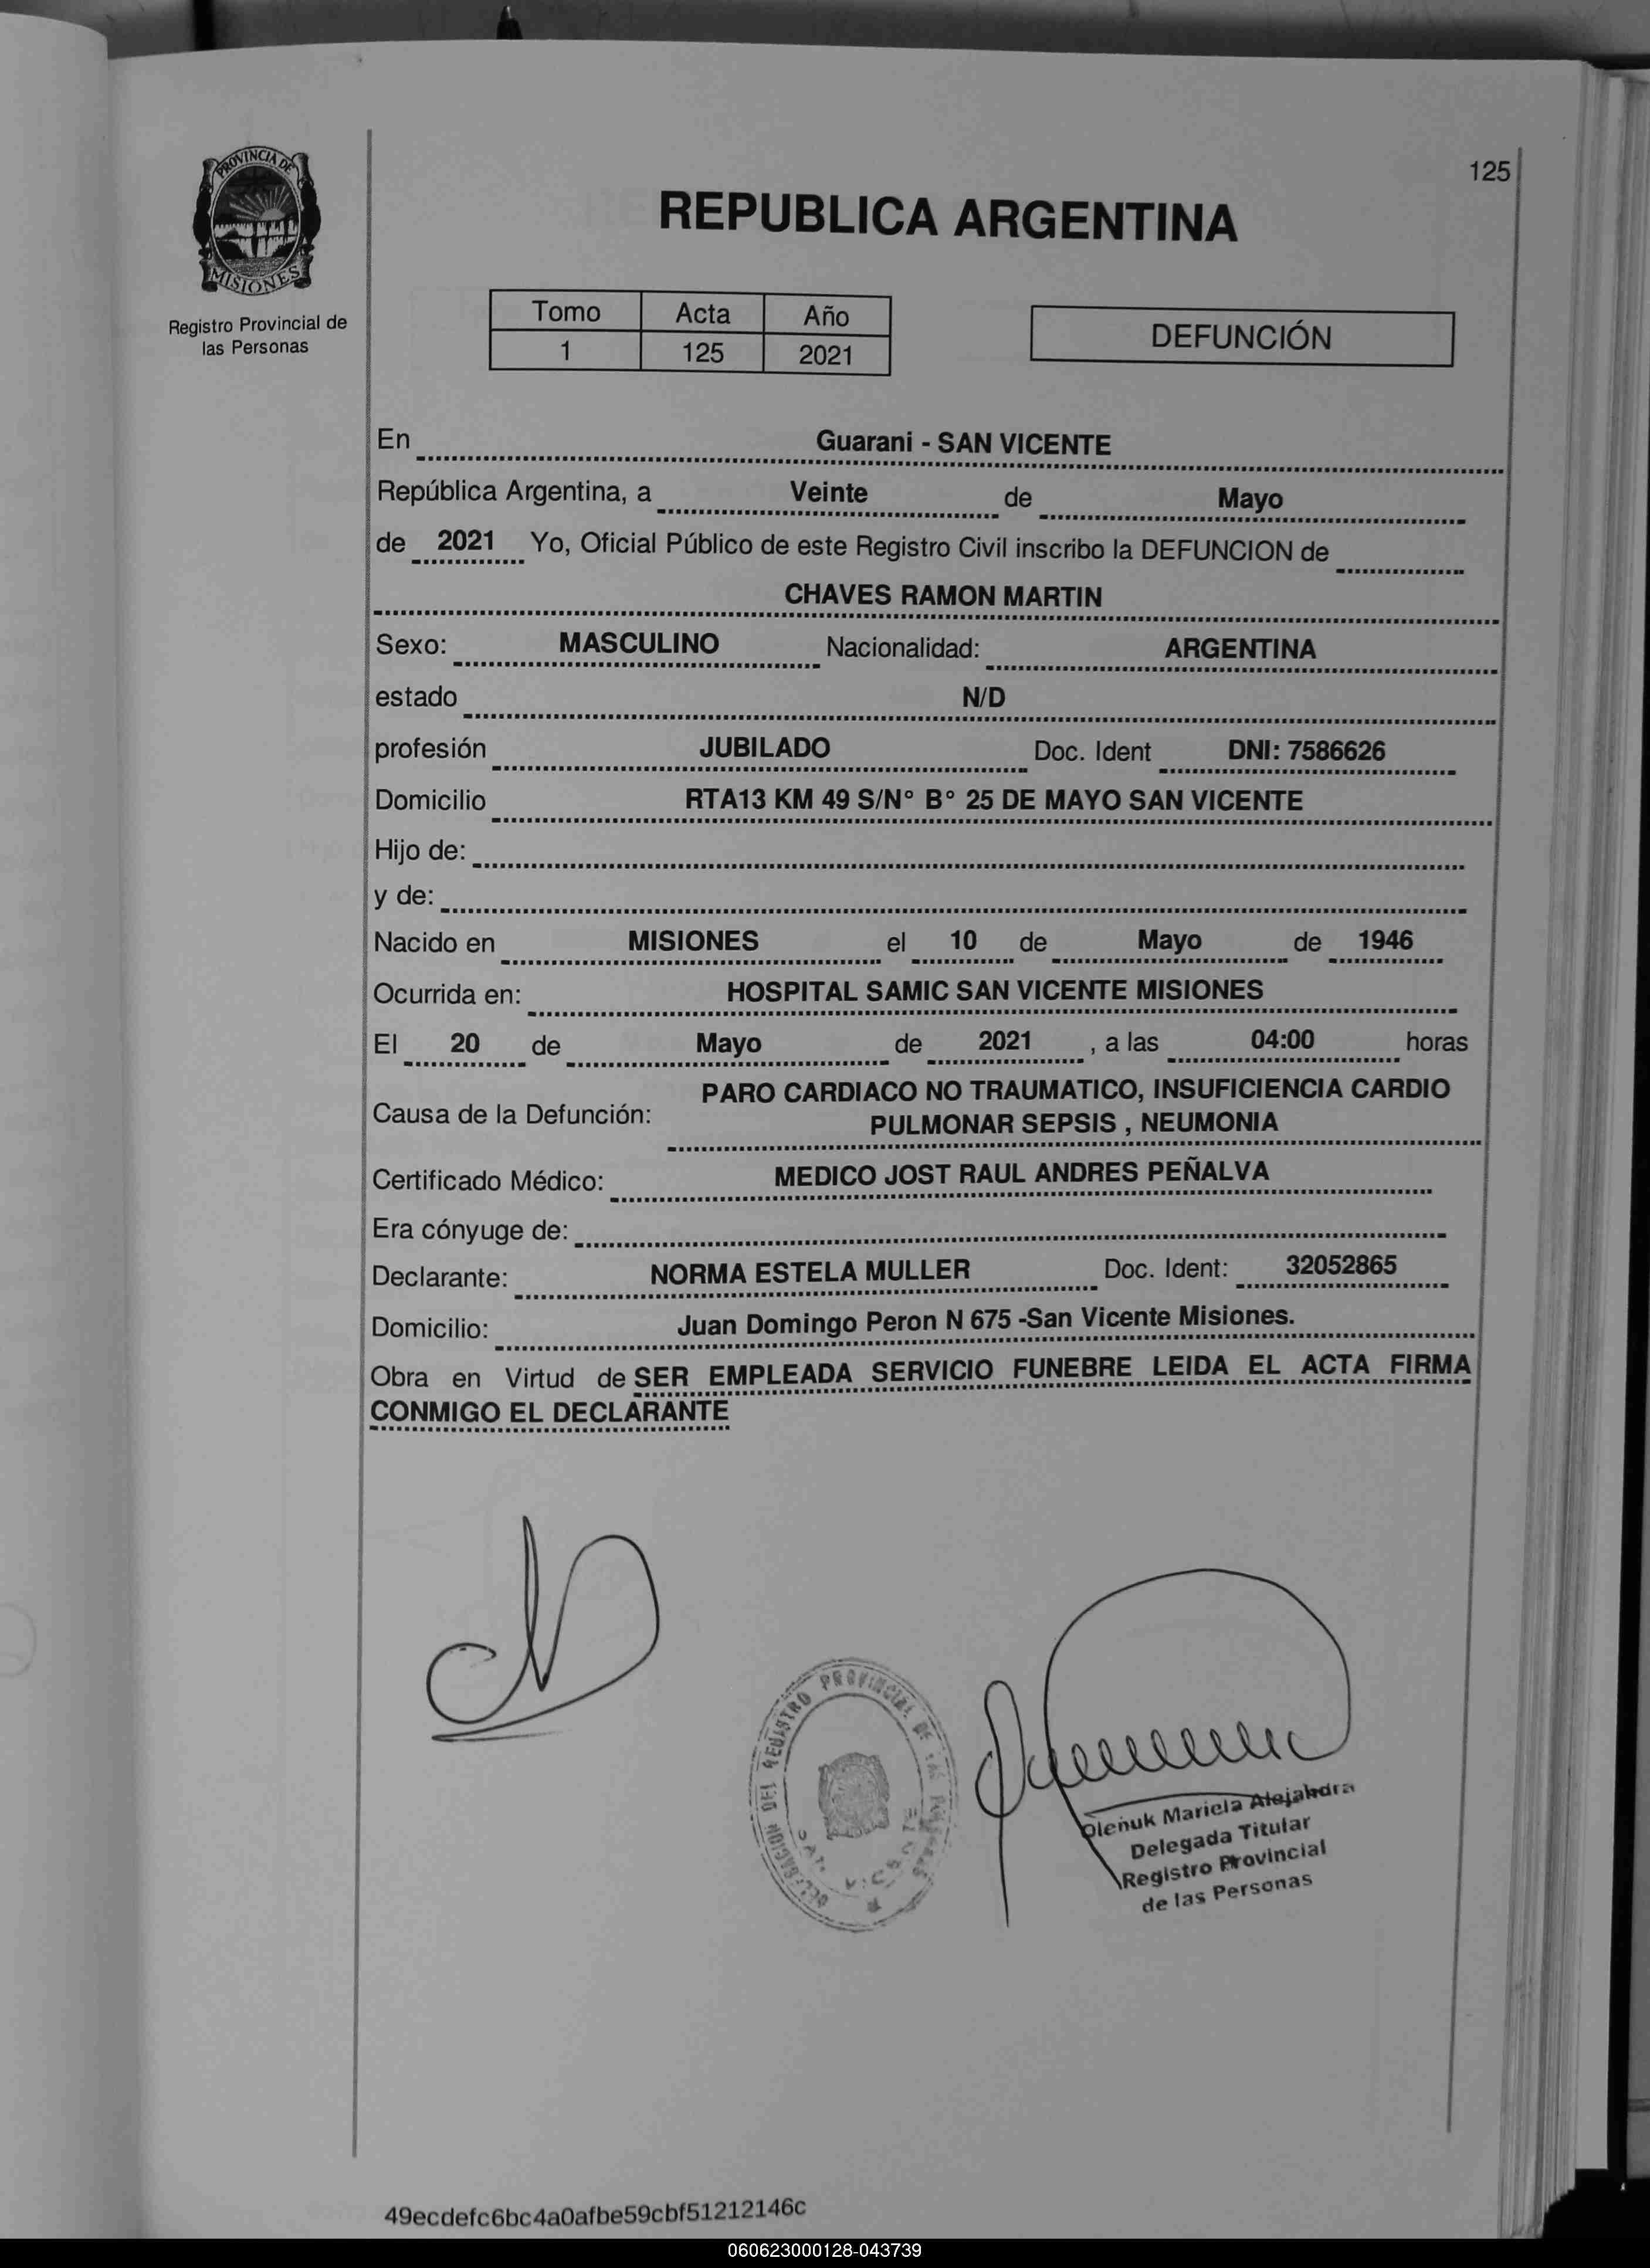 125
PROVINCIA DE
MISIONES
Registro Provincial de
las Personas
REPUBLICA ARGENTINA
Tomo Acta Año
1 125 2021
DEFUNCIÓN
En Guarani - SAN VICENTE
República Argentina, a Veinte de Mayo
de 2021 Yo, Oficial Público de este Registro Civil inscribo la DEFUNCION de
CHAVES RAMON MARTIN
Sexo: MASCULINO Nacionalidad: ARGENTINA
estado N/D
profesión JUBILADO Doc. Ident DNI: 7586626
Domicilio RTA13 KM 49 S/N° B° 25 DE MAYO SAN VICENTE
Hijo de:
y de:
Nacido en MISIONES el 10 de Mayo de 1946
Ocurrida en: HOSPITAL SAMIC SAN VICENTE MISIONES
El 20 de Mayo de 2021 , a las 04:00 horas
Causa de la Defunción: PARO CARDIACO NO TRAUMATICO, INSUFICIENCIA CARDIO
PULMONAR SEPSIS , NEUMONIA
Certificado Médico: MEDICO JOST RAUL ANDRES PEÑALVA
Era cónyuge de:
Declarante: NORMA ESTELA MULLER Doc. Ident: 32052865
Domicilio: Juan Domingo Peron N 675 -San Vicente Misiones.
Obra en Virtud de SER EMPLEADA SERVICIO FUNEBRE LEIDA EL ACTA FIRMA
CONMIGO EL DECLARANTE
DELEGACION DEL REGISTRO PROVINCIAL DE LAS PERSONAS
SAN VICENTE
Olenuk Mariela Alejandra
Delegada Titular
Registro Provincial
de las Personas
49ecdefc6bc4a0afbe59cbf51212146c
060623000128-043739